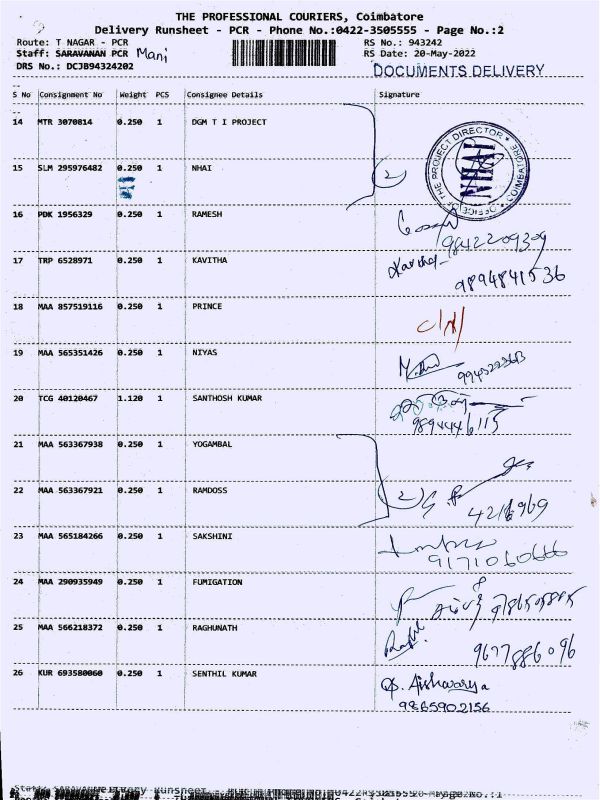 THE PROFESSIONAL COURIERS, Coimbatore
Delivery Runsheet - PCR - Phone No.:0422-3505555 - Page No.:2
Route: T NAGAR - PCR RS No.: 943242
Staff: SARAVANAN PCR Mani RS Date: 20-May-2022
DRS No.: DCJB94324202 DOCUMENTS DELIVERY
S No Consignment No Weight PCS Consignee Details Signature
14 MTR 3070814 0.250 1 DGM T I PROJECT
15 SLM 295976482 0.250 1 NHAI 2
OFFICE OF THE PROJECT DIRECTOR COIMBATORE NHAI
16 PDK 1956329 0.250 1 RAMESH 9842209309
17 TRP 6528971 0.250 1 KAVITHA Kavitha 9894841536
18 MAA 857519116 0.250 1 PRINCE
19 MAA 565351426 0.250 1 NIYAS
20 TCG 40120467 1.120 1 SANTHOSH KUMAR 9894446115
21 MAA 563367938 0.250 1 YOGAMBAL
22 MAA 563367921 0.250 1 RAMDOSS 2
23 MAA 565184266 0.250 1 SAKSHINI 9171060666
24 MAA 290935949 0.250 1 FUMIGATION
25 MAA 566218372 0.250 1 RAGHUNATH 9677886096
26 KUR 693580060 0.250 1 SENTHIL KUMAR S. Aishwarya
9865902156